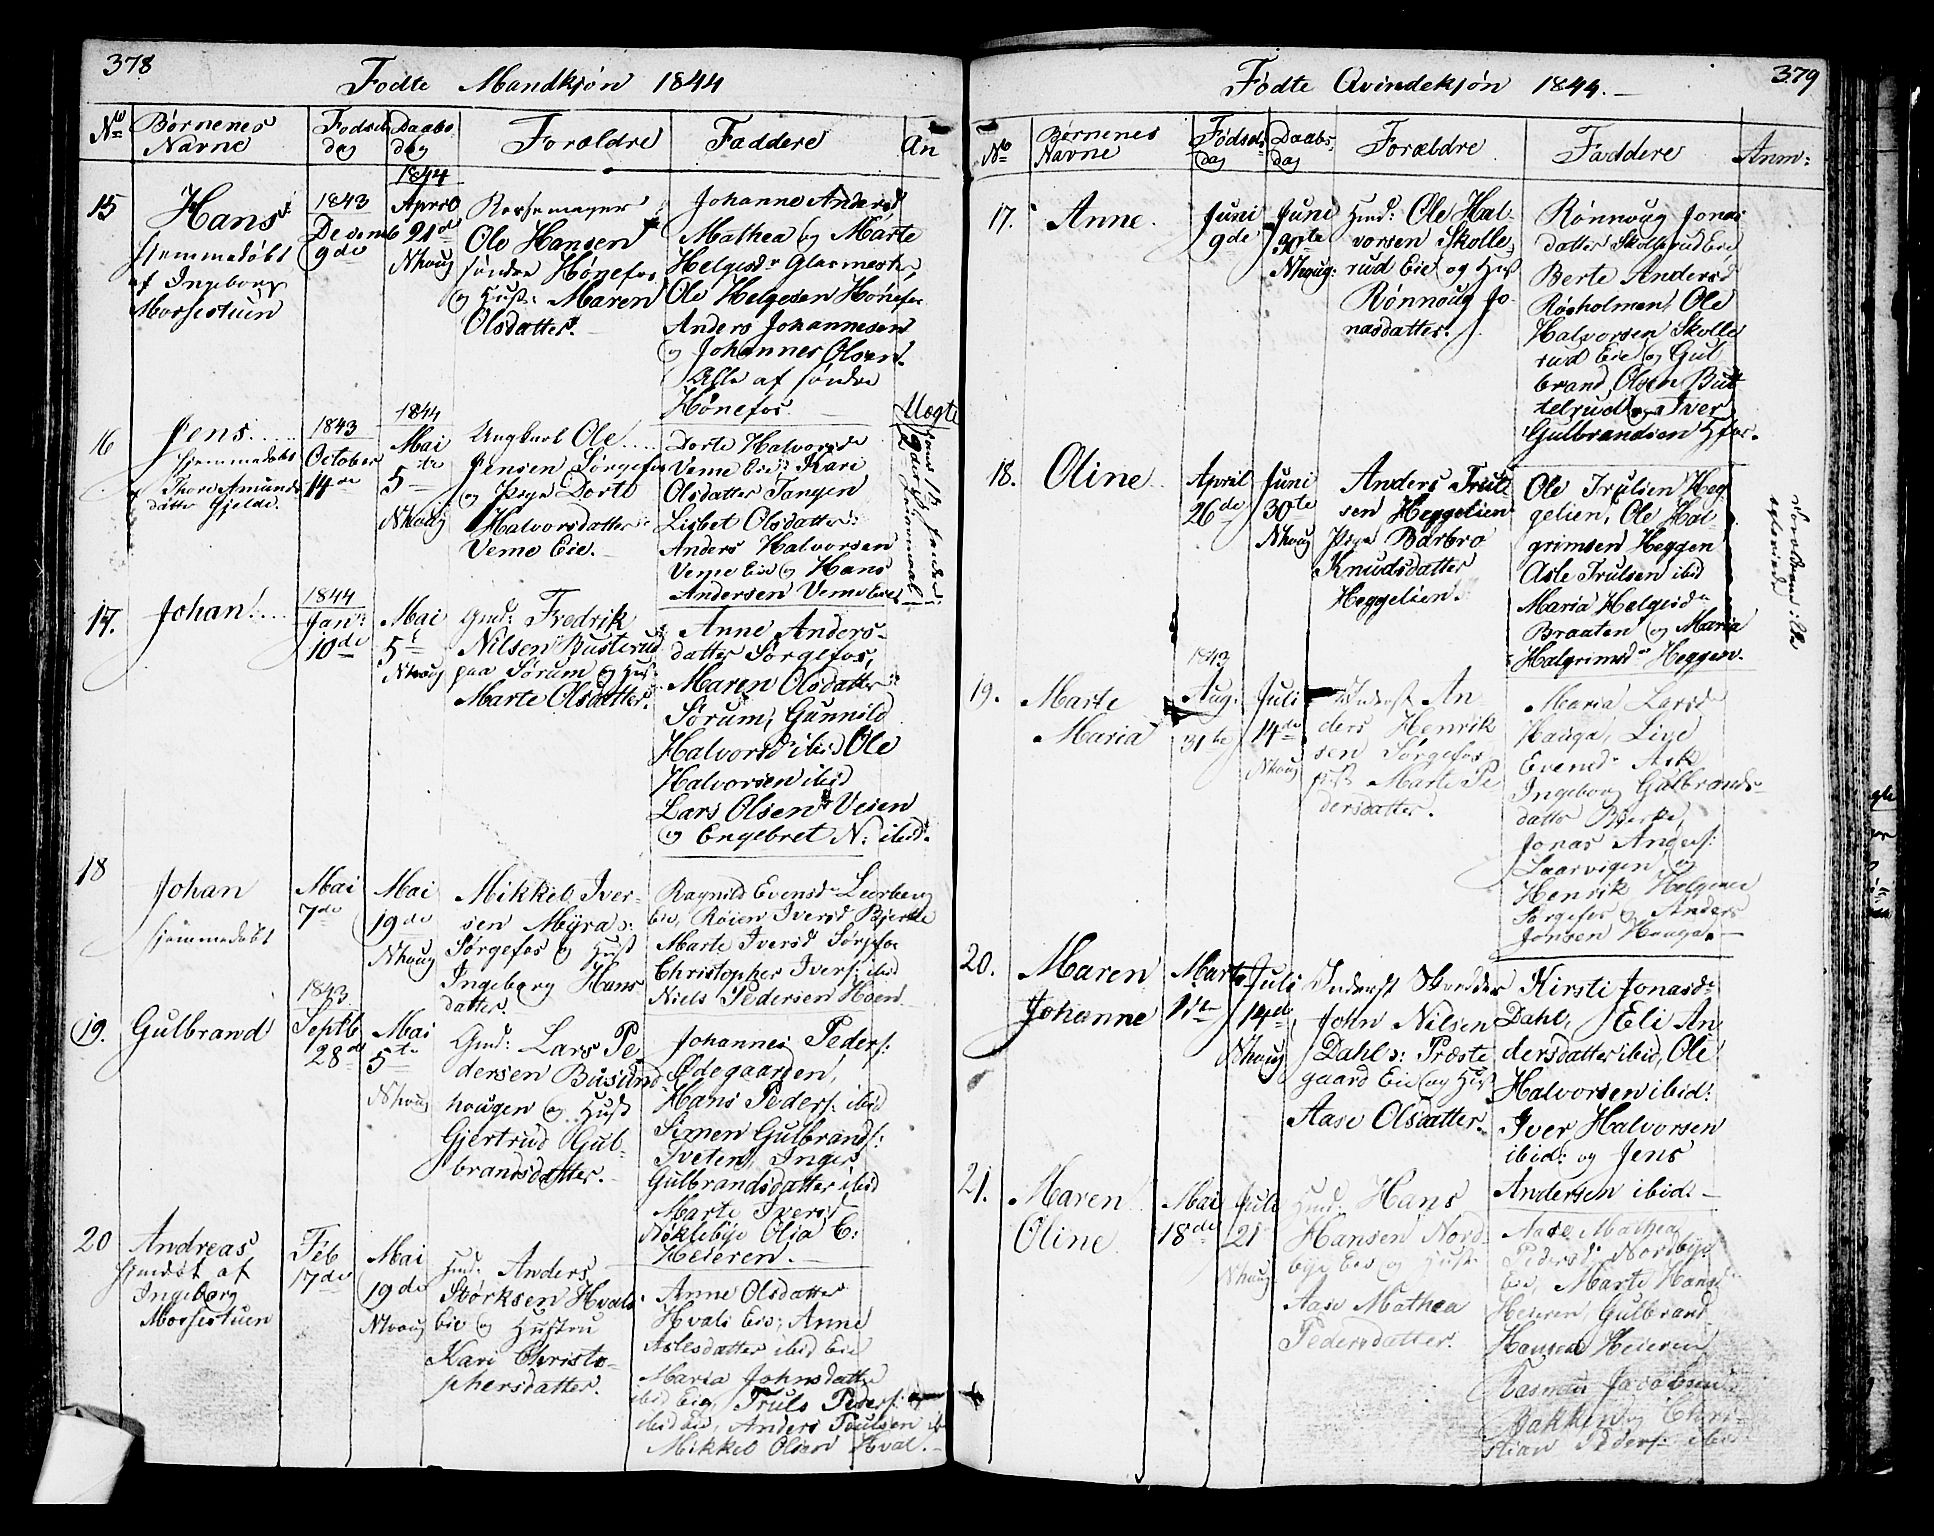 378
Fødte Mandkjøn 1844
No
Børnenes Navne
Fødsels dag
Daabs dag
Forældre
Faddere
An
15
Hans
hjemmedøbt
af Ingeborg
Morsestuen
1843
Decemb
9de
1844
April
21de
Nhoug
Ole Hansen
søndre Hønefos
og Hust: Maren
Olsdatter.
Johanne Andersd
Mathea og Marte
Helgesdr Glarmester
Ole Helgesen Hønefos
Anders Johannesen
og Johannes Olsen.
Alle af søndre
Hønefos
16
Jens
hjemmedøbt
af Thore Amunds
datter Gjelde.
1843
October
14de
1844
Mai
5te
Nhoug
Ungkarl Ole
Jensen Sørgefos
og Pige Dorte
Halvorsdatter
Veme Eie.
Dorte Halvorsd
Veme Eie, Kari
Olsdatter Tangen
Lisbet Olsdatter
Anders Halvorsen
Veme Eie og Hans
Andersen Veme Eie
Uægte
17.
Johan
1844
Jan:
10de
Mai
5te
Nhoug
Gmd: Fredrik
Nilsen Busterud
paa Sørum og Hust
Marte Olsdatter.
Anne Anders-
datter Sørgefos,
Maren Olsdatter
Sørum, Gunnild
Halvorsd ibid Ole
Halvorsen ibid
Lars Olsen Veien
og Engebret N: ibid.
18
Johan
hjemmedøbt
Mai
7de
Mai
19de
Nhoug
Mikkel Iver-
sen Myra
Sørgefos og Hust
Ingeborg Hans
datter.
Ragnild Evensd Leerberg
Eie, Roien Iversd Bjerke
Marte Iversd Sørgefos
Christopher Ivers: ibid
Niels Pedersen Hoen
19.
Gulbrand
1843
Septb
28de
Mai
5te
Nhoug
Gmd: Lars Pe
dersen Busund
hougen og Hust
Gjertrud Gul-
brandsdatter.
Johannes Peders:
Ødegaarden,
Hans Peders: ibid
Simen Gulbrands:
Tveten, Inger
Gulbrandsdatter ibid
Marte Iversd
Nøklebye Olia C:
Heieren.
20
Andreas
hjmdøt af
Ingeborg
Morsestuen
Feb
17de
Mai
19de
Nhoug
Hmd: Anders
Størksen Hvals
Eie og Hustru
Kari Christo-
phersdatter.
Anne Olsdatter
Hvals Eie, Anne
Aslesdatter ibid Eie
Maria Johnsdatter
ibid Eie, Truls Peders:
ibid Eie, Anders Trulsen ib
Mikkel Olsen Hval.
379
Fødte Qvindekjøn 1844.
No
Børnenes Navne
Fødsels dag
Daabs dag
Forældre
Faddere
Anm:
17.
Anne.
Juni
9de
Juni
30te
Nhoug:
Hmd: Ole Hal-
vorsen Skolle-
rud Eie og Hust
Rønnoug Jo-
nasdatter.
Rønnoug Jonas
datter Skollerud Eie
Berte Andersd
Røsholmen, Ole
Halvorsen Skolle
rud Eie og Gul
brand Olsen But
telrud og Iver
Gulbrandsen Hfos.
18.
Oline
April
26de
Juni
30te
Nhoug
Anders Trul
sen Heggelien
Pige Barbro
Knudsdatter
Heggelien.
Ole Trulsen Heg
gelien, Ole Hal-
grimsen Heggen
Asle Trulsen ibid
Maria Helgesdr
Braaten og Maria
Halgrimsdr Heggen.
19.
Marte
Maria
1843
Aug.
31te
Juli
14de
Nhoug
Inderst An-
ders Henrik
sen Sørgefos
Hust Marte Pe
dersdatter.
Maria Larsd
Hauga, Lise
Evensdr Ask
Ingeborg Gulbrands-
datter Bjerke,
Jonas Anders:
Laarvigen og
Henrik Helgesen
Sørgefos og Anders
Jonsen Hauga.
20.
Maren
Johanne
Marts
Juli
14de
Nhoug
Inderst Skredder
John Nilsen
Dahl s: Præste
gaard Eie og Hust
Aase Olsdatter.
Kirsti Jonasdr
Dahl, Eli An
dersdatter ibid, Ole
Halvorsen ibid:
Iver Halvorsen
ibid: og Jens
Andersen ibid:
21.
Maren
Oline
Mai
18de
Juli
21
Nhoug
Hmd: Hans
Hansen Nord
bye Eie og Hust
Aase Mathea
Pedersdatter.
Aase Mathea
Pedersd: Nordbye
Eie, Marte Hansd
Heieren, Gulbrand
Hansen Heieren
Rasmus Jacobsen
Jakken og Chri-
stian Peders: ibid